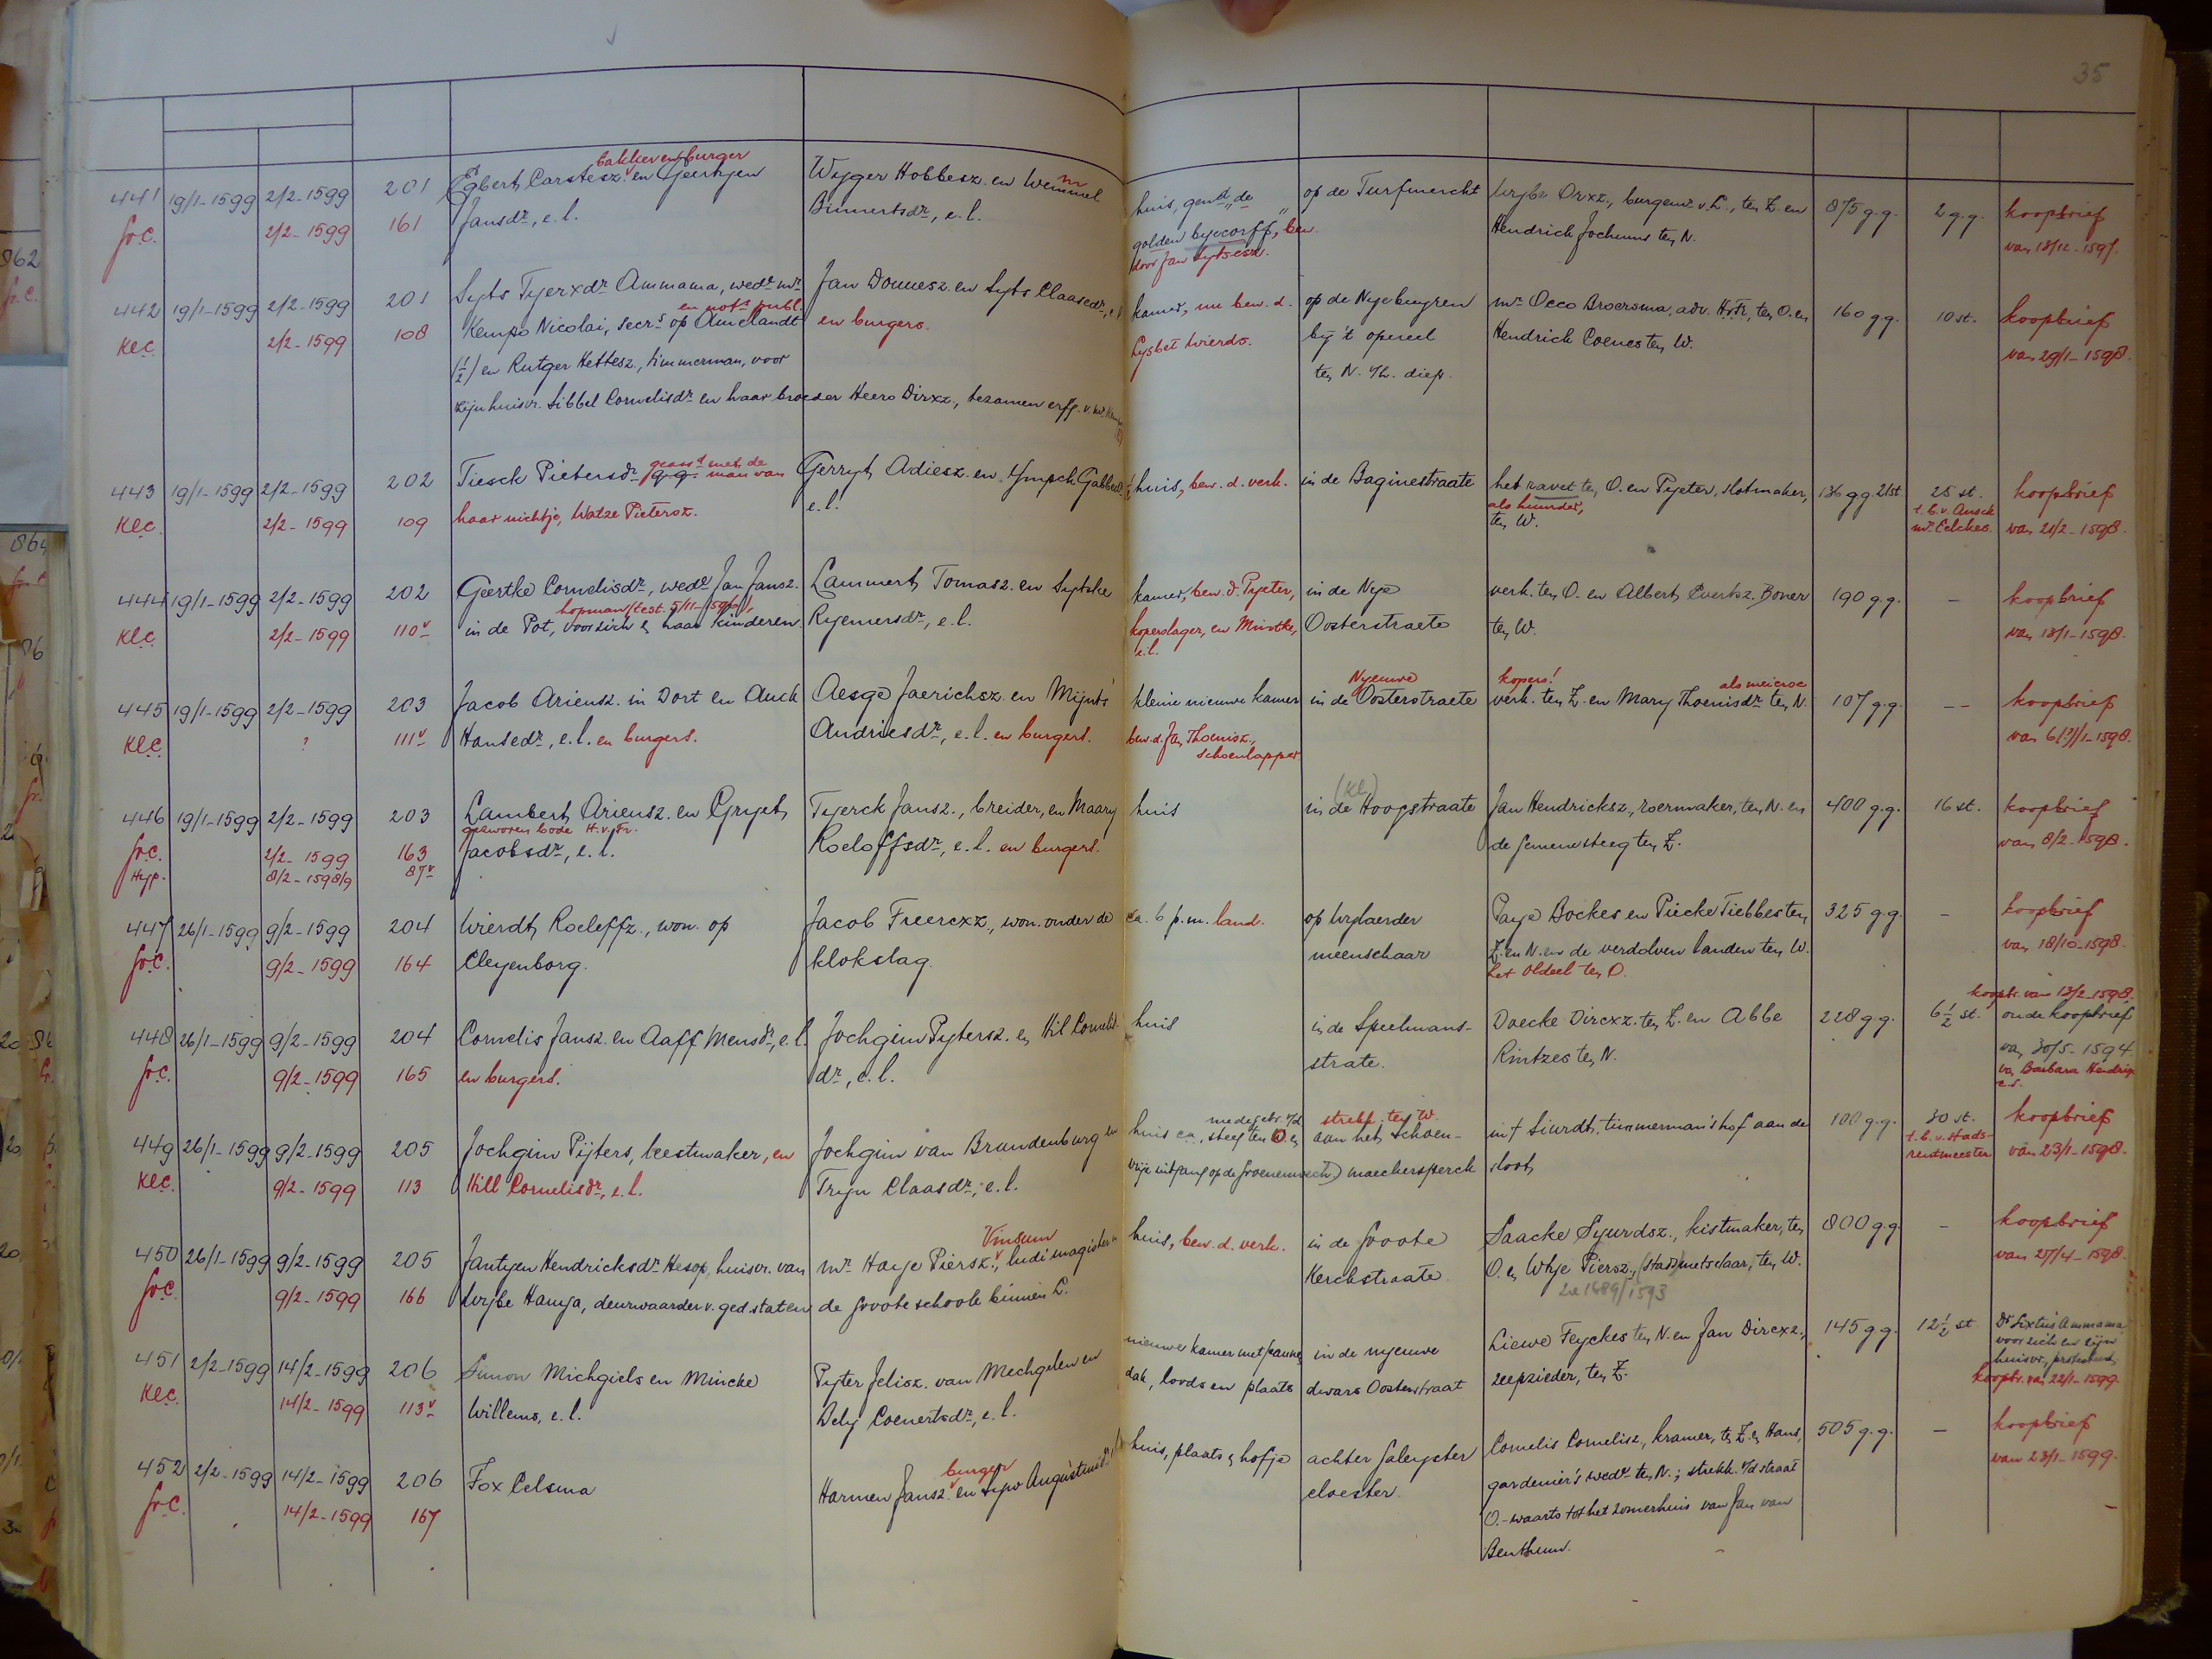 35
441 19/1-1599 2/2-1599 201 Egbert Carstesz. bakker en burger en Geertyen Wyger Hobbesz. en Wemmel huis, gend. „de op de Turfmerckt Wybe Dirxz., burgemr. v. L., ten Z. en 875 g.g. 2 g.g. koopbrief
Gr.C. 2/2-1599 161 Jansdr., e.l. Binnertsdr., e.l. golden byecorff", bew. Hendrick Jochums ten N. van 18/12-1597.
door Jan Sytsesz.
442 19/1-1599 2/2-1599 201 Syts Tjerxdr. Ammama, wede. mr. Jan Douwesz. en Syts Claasedr., e.l. kamer, nu bew. d. op de Nyeburgren mr. Occo Broersma, adv. H.v.Fr., ten O. en 160 g.g. 10 st. koopbrief
Kl.C. 2/2-1599 108 Kempo Nicolai, secrs. en nots. publ. op Amelandt en burgers. Lysbet Wierds. bij 't opereel Hendrick Coenes ten W. van 29/1-1598.
(½) en Rutger Kettesz., timmerman, voor ten N. v/h. diep.
zijn huisvr. Sibbel Cornelisdr. en haar broeder Heero Dirxz., tezamen erfg. v. mr.
443 19/1-1599 2/2-1599 202 Tiesck Pietersdr. geass. met de man van Gerryt Adiesz. en Ympck Gabbedr. huis, bew. d. verk. in de Baginestraate het ravet ten O. en Pyeter, slotmaker, 136 gg 21 st. 25 st. koopbrief
Kl.C. 2/2-1599 109 haar nichtje, Watze Pietersz. e.l. als huurder, ten W. t.b.v. Ansck mr. Eelckes. van 21/2-1598.
444 19/1-1599 2/2-1599 202 Geertke Cornelisdr., wede. Jan Jansz. Lammert Tomasz. en Sytske kamer, bew. d. Pyeter, in de Nye verk. ten O. en Albert Evertsz. Boner 190 g.g. - koopbrief
Kl.C. 2/2-1599 110v in de Pot, hopman (test. 5/11-1596), voor zich & haar kinderen. Ryemersdr., e.l. koperslager, en Mintke, e.l. Oosterstraete ten W. van 13/1-1598.
445 19/1-1599 2/2-1599 203 Jacob Ariensz. in Dort en Anck Aesge Jaerichsz. en Mijnts kleine nieuwe kamer in de Nyeuwe Oosterstraete kopers! verk. ten Z. en Mary Thoenisdr. als meieroe ten N. 107 g.g. -- koopbrief
Kl.C. ? 111v Hansedr., e.l. en burgers. Andriesdr., e.l. en burgers. bew. d. Jan Thonisz., schoenlapper van 6(?)/1-1598.
446 19/1-1599 2/2-1599 203 Lambert Ariensz. en Gryet Tyerck Jansz., breider, en Maary huis in de (Kl.) Hoogstraate Jan Hendricksz., roermaker, ten N. en 400 g.g. 16 st. koopbrief
Gr.C. 2/2-1599 163 gezworen bode H.v.Fr. Jacobsdr., e.l. Roeloffsdr., e.l. en burgers. de gemene steeg ten Z. van 8/2-1598.
Hyp. 8/2-1598/9 87v
447 26/1-1599 9/2-1599 204 Wierdt Roeleffz., won. op Jacob Freercxz., won. onder de ca. 6 p.m. land. op Wylaerder Paye Bockes en Piecke Tiebbes ten 325 g.g. - koopbrief
Gr.C. 9/2-1599 164 Cleyenborg. klokslag. meenschaar Z. en N. en de verdolven landen ten W. van 18/10-1598.
het oldeel ten O.
448 26/1-1599 9/2-1599 204 Cornelis Jansz. en Aaff Mensdr., e.l. Jochgim Pytersz. en Hil Cornelis- huis in de Speelmans- Doecke Dircxz. ten Z. en Abbe 228 g.g. 6½ st. koopbr. van 13/2-1598. oude koopbrief
Gr.C. 9/2-1599 165 en burgers. dr., e.l. strate. Rintzes ten N. van 30/5-1594 van Barbara Hendrix c.s.
449 26/1-1599 9/2-1599 205 Jochgim Pijters, leestmaker, en Jochgim van Brandenburg en huis ca., medegebr. v/d steeg ten O. en strekk. ten W. aan het Schoen- in 't Siurdt timmermanshof aan de 100 g.g. 30 st. koopbrief
Kl.C. 9/2-1599 113 Hill Cornelisdr., e.l. Tryn Claasdr., e.l. vrije uitgang op de Groenewech) maeckersperck sloot t.b.v. Stads-rentmeester van 23/1-1598.
450 26/1-1599 9/2-1599 205 Jantyen Hendricksdr. Hesop, huisvr. van mr. Haye Piersz. Vinsum, ludimagister in huis, bew. d. verk. in de Groote Saacke Syurdsz., kistmaker, ten 800 g.g. - koopbrief
Gr.C. 9/2-1599 166 Wybe Hanya, deurwaarder v. ged. staten de Groote schoole binnen L. Kerckstraate O. en Wtje Piersz., (stads)metselaar, ten W. van 27/4-1598.
451 2/2-1599 14/2-1599 206 Simon Michgiels en Mincke Pyter Jelisz. van Mechgelen en nieuwe kamer met pannen in de nyeuwe Liewe Feyckes ten N. en Jan Dircxz., 145 g.g. 12½ st. Dr. Sixtus Ammama
Kl.C. 14/2-1599 113v Willems, e.l. Dely Coenertsdr., e.l. dak, loods en plaats dwars Oosterstraat zeepzieder, ten Z. voor zich en zijn huisvr., protesteert, koopbr. van 22/1-1599.
452 2/2-1599 14/2-1599 206 Fox Celsma Harmen Jansz. burger en Augustinusdr. huis, plaats & hofje achter Galeyster Cornelis Cornelisz., kramer, ten Z. en Hans, 505 g.g. - koopbrief
Gr.C. 14/2-1599 167 cloester. gardenier's wede. ten N.; strekk. v/d straat van 23/1-1599.
O.-waarts tot het zomerhuis van Jan van
Benthum.